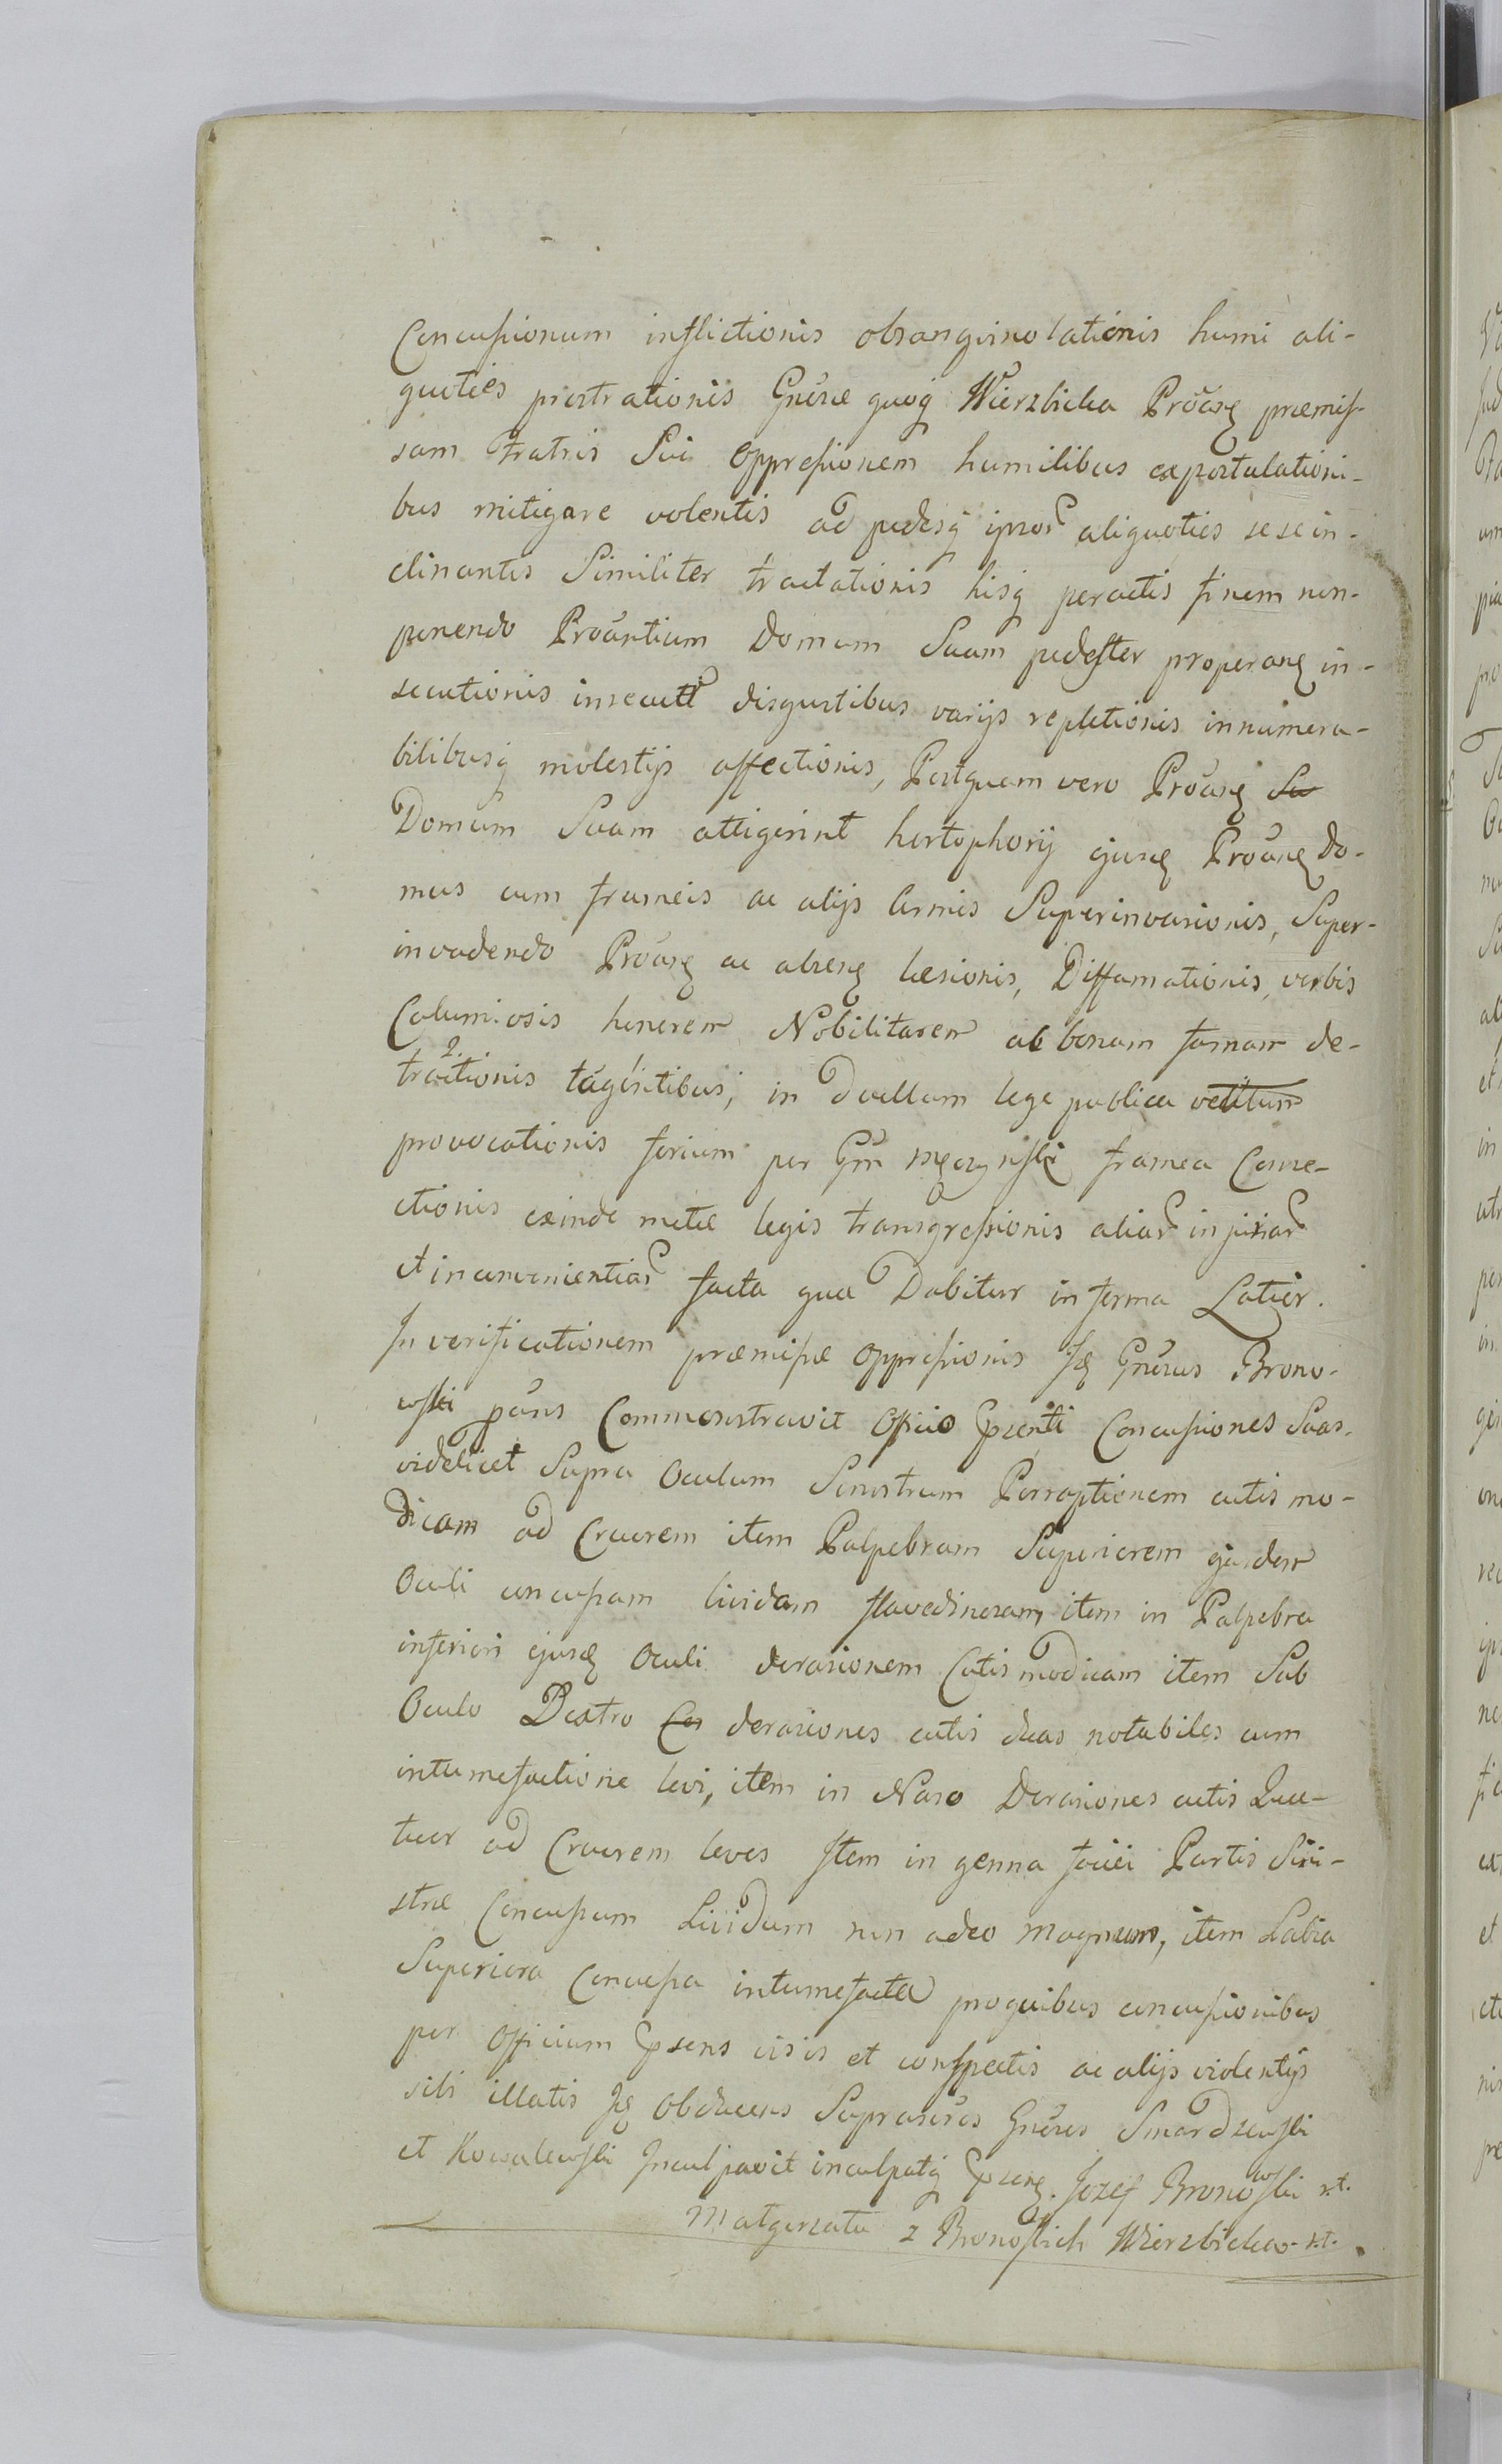 Concussionum inflictionis obsangvinolationis humi ali-
quoties prostrationis Gnosæ quoq Wierzbicka Proãng præmis-
sam Fratris Sui oppressionem humilibus expostulationi-
bus mitigare volentis ad pedesq ipsor aliquoties se se in-
clinantis Similiter tractationis hisq peractis finem non-
ponendo Proãntium Domum Suam pedester properang in-
secutionis insecutt disgustibus varijs repletionis innumera-
bilibusq molestijs affectionis, Postquam vero Proãng Su
Domum Suam attigerint hortophorij ejusq Proãng do-
mus cum frameis ac alijs Armis Superinvasionis, Super-
invadendo Proãng ac absenq læsionis, Diffamationis, verbis
Calumi:osis honorem Nobilitarem ac bonam famam de-
2.
tractionis tãgentibus, in duellum lege publica vetitum
provocationis ferium per Gm framea Conve-
ctionis exinde metæ legis transgressionis aliar injuriar
et inconvenientiar facta quæ Dabitur in forma Latior.
In verificationem præmissæ oppressionis Jq Gnosus Brono-
wski pãns Commonstravit Officio pzenti Concussiones Suas,
videlicet Supra Oculum Sinistrum Perruptionem cutis mo-
dicam ad Cruorem item Palpebram Superiorem ejusdem
Oculi concussam lividam flavedinosam, item in Palpebra
inferiori ejusq Oculi derasionem Cutis modicam item Sub
Oculo Dextro Co derasiones cutis duas notabiles cum
intumefactione levi, item in Naso Derasiones cutis Qua-
tuor ad Cruorem leves Item in genna faciei Partis Sini-
stræ Concussum Lividum non adeo magnum, item Labia
Superiora Concussa intumefacta proquibus concussionibus
per Officium pzens visis et conspectis ac alijs violentijs
sibi illatis Jq Obducens Suprascros Gnosos Smardzewski
et Kowalewski Inculpavit inculpatq pzenq. Jozef Bronowski r.t.
Małgorzata z Bronoskich Wierzbicka r.t.